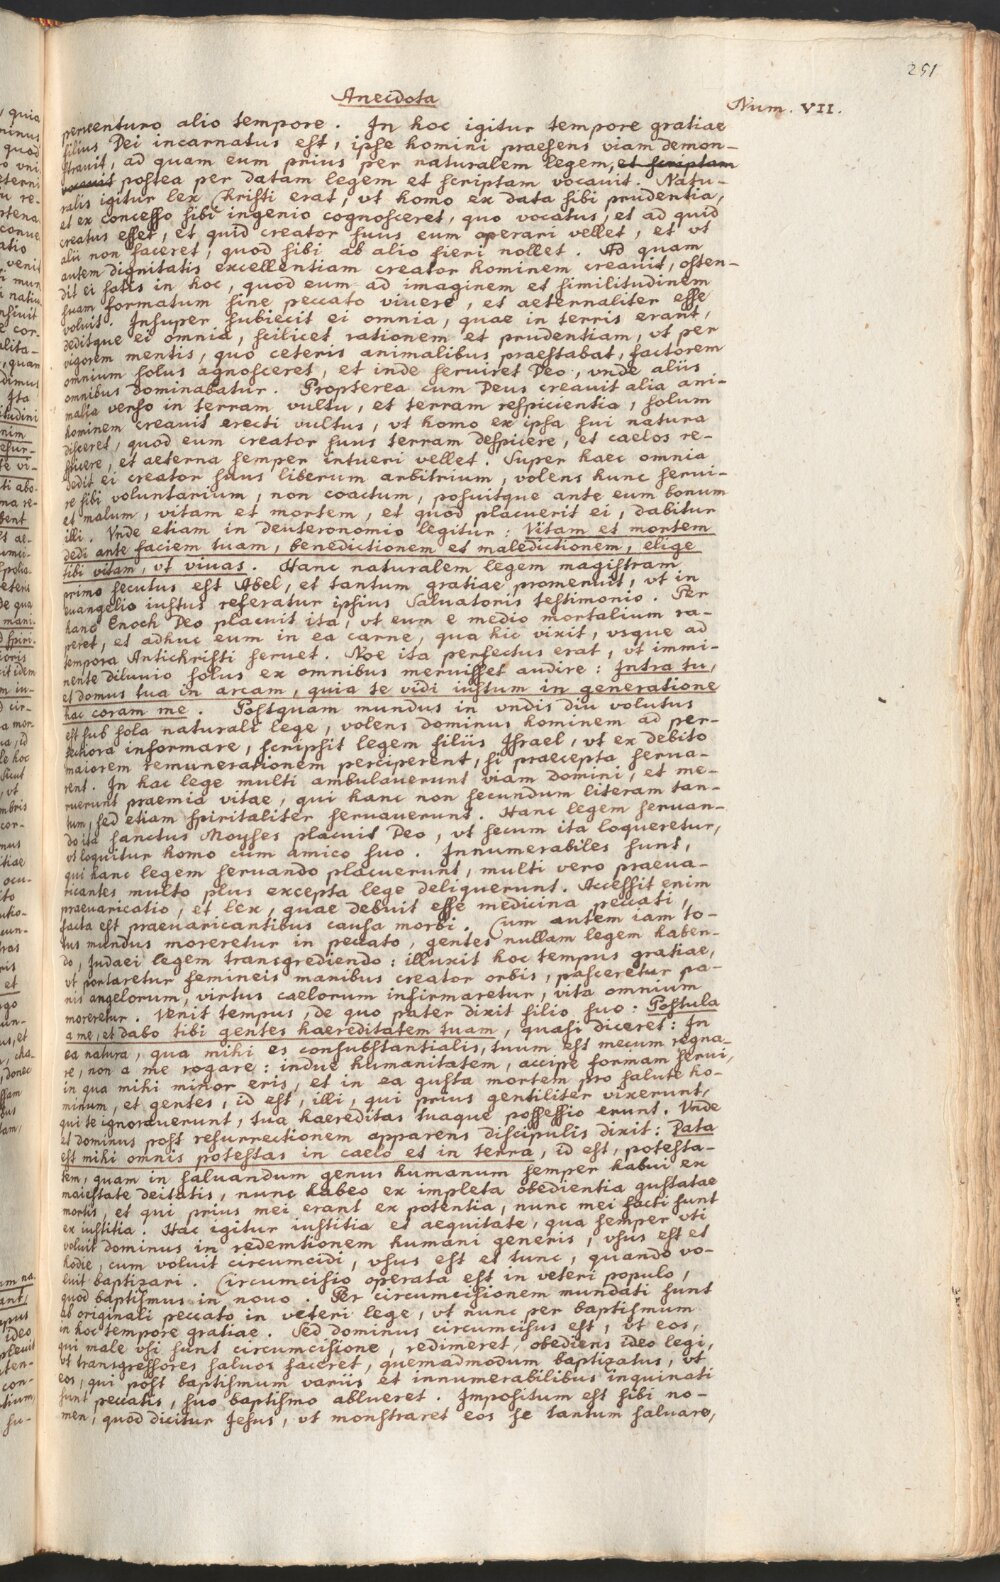 251
Anecdota
Num. VII.
perventuro alio tempore. In hoc igitur tempore gratiae
filius Dei incarnatus est, ipse homini praesens viam demon-
stravit, ad quam eum prius per naturalem legem, et scriptam
vocavit postea per datam legem et scriptam vocavit. Natu-
ralis igitur lex Christi erat, vt homo ex data sibi prudentia,
et ex concesso sibi ingenio cognosceret, quo vocatus, et ad quid
creatus esset, et quid creator suus eum operari vellet, et vt
alii non faceret, quod sibi ab alio fieri nollet. Ad quam
autem dignitatis excellentiam creator hominem creauit, osten-
dit ei satis in hoc, quod eum ad imaginem et similitudinem
suam formatum sine peccato viuere, et aeternaliter esse
voluit. Insuper subiecit ei omnia, quae in terris erant,
deditque ei omnia, scilicet rationem et prudentiam, vt per
vigorem mentis, quo ceteris animalibus praestabat, factorem
omnium solus agnosceret, et inde serviret Deo, vnde aliis
omnibus dominabatur. Propterea cum Deus creauit alia ani-
malia verso in terram vultu, et terram respicientia, solum
hominem creauit erecti vultus, vt homo ex ipsa sui natura
disceret, quod eum creator suus terram despicere, et caelos re-
spicere, et aeterna semper intueri vellet. Super haec omnia
dedit ei creator suus liberum arbitrium, volens hunc serui-
re sibi voluntarium, non coactum, posuitque ante eum bonum
et malum, vitam et mortem, et quod placuerit ei, dabitur
illi. Vnde etiam in deuteronomio legitur: Vitam et mortem
dedi ante faciem tuam, benedictionem et maledictionem, elige
tibi vitam, vt viuas. Hanc naturalem legem magistram
primo secutus est Abel, et tantum gratiae promeruit, vt in
euangelio iustus referatur ipsius Salvatoris testimonio. Per
hanc Enoch Deo placuit ita, vt eum e medio mortalium ra-
peret, et adhuc eum in ea carne, qua hic vixit, vsque ad
tempora Antichristi seruet. Noe ita perfectus erat, vt immi-
nente diluuio solus ex omnibus meruisset audire: Intra tu,
et domus tua in arcam, quia te vidi iustum in generatione
hac coram me. Postquam mundus in vndis diu volutus
est sub sola naturali lege, volens dominus hominem ad per-
fectiora informare, scripsit legem filiis Israel, vt ex debito
maiorem remunerationem perciperent, si praecepta serua-
rent. In hac lege multi ambulauerunt viam domini, et me-
ruerunt praemia vitae, qui hanc non secundum literam tan-
tum, sed etiam spiritaliter seruauerunt. Hanc legem seruan-
do ita sanctus Moyses placuit Deo, vt secum ita loqueretur,
vt loquitur homo cum amico suo. Innumerabiles sunt,
qui hanc legem seruando placuerunt, multi vero praeua-
ricantes multo plus excepta lege deliquerunt. Accessit enim
praeuaricatio, et lex, quae debuit esse medicina peccati,
facta est praeuaricantibus causa morbi. Cum autem iam to-
tus mundus moreretur in peccato, gentes nullam legem haben-
do, Iudaei legem transgrediendo: illuxit hoc tempus gratiae,
vt portaretur femineis manibus creator orbis, pasceretur pa-
nis angelorum, virtus caelorum infirmaretur, vita omnium
moreretur. Venit tempus, de quo pater dixit filio suo: Postula
a me, et dabo tibi gentes haereditatem tuam, quasi diceret: In
ea natura, qua mihi es consubstantialis, tuum est mecum regna-
re, non a me rogare: indue humanitatem, accipe formam serui,
in qua mihi minor eris, et in ea gusta mortem pro salute ho-
minum, et gentes, id est, illi, qui prius gentiliter vixerunt,
qui te ignorauerunt, tua haereditas tuaque possessio erunt. Vnde
et dominus post resurrectionem apparens discipulis dixit: Data
est mihi omnis potestas in caelo et in terra, id est, potesta-
tem, quam in saluandum genus humanum semper habui ex
maiestate deitatis, nunc habeo ex impleta obedientia gustatae
mortis, et qui prius mei erant ex potentia, nunc mei facti sunt
ex iustitia. Hac igitur iustitia et aequitate, qua semper vti
voluit dominus in redemtionem humani generis, vsus est et
hodie, cum voluit circumcidi, vsus est et tunc, quando vo-
luit baptizari. Circumcisio operata est in veteri populo,
quod baptismus in nouo. Per circumcisionem mundati sunt
ab originali peccato in veteri lege, vt nunc per baptismum
in hoc tempore gratiae. Sed dominus circumcisus est, vt eos,
qui male vsi sunt circumcisione, redimeret, obediens ideo legi,
vt transgressores saluos faceret, quemadmodum baptizatus, vt
eos, qui post baptismum variis et innumerabilibus inquinati
sunt peccatis, suo baptismo ablueret. Impositum est sibi no-
men, quod dicitur Iesus, vt monstraret eos se tantum saluare,